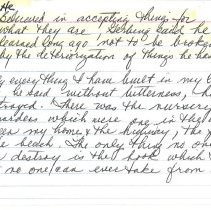 He
believed in accepting things for
what they are. Gerbing said he
learned long ago not to be broken
by the deterioration of things he has
everything I have built in my
he said without bitterness, h
troyed. There was the nursery
ardens which were one in the
een my home & the highway, the
e beach. The only thing no one
destroy is the book which
no one can ever take from